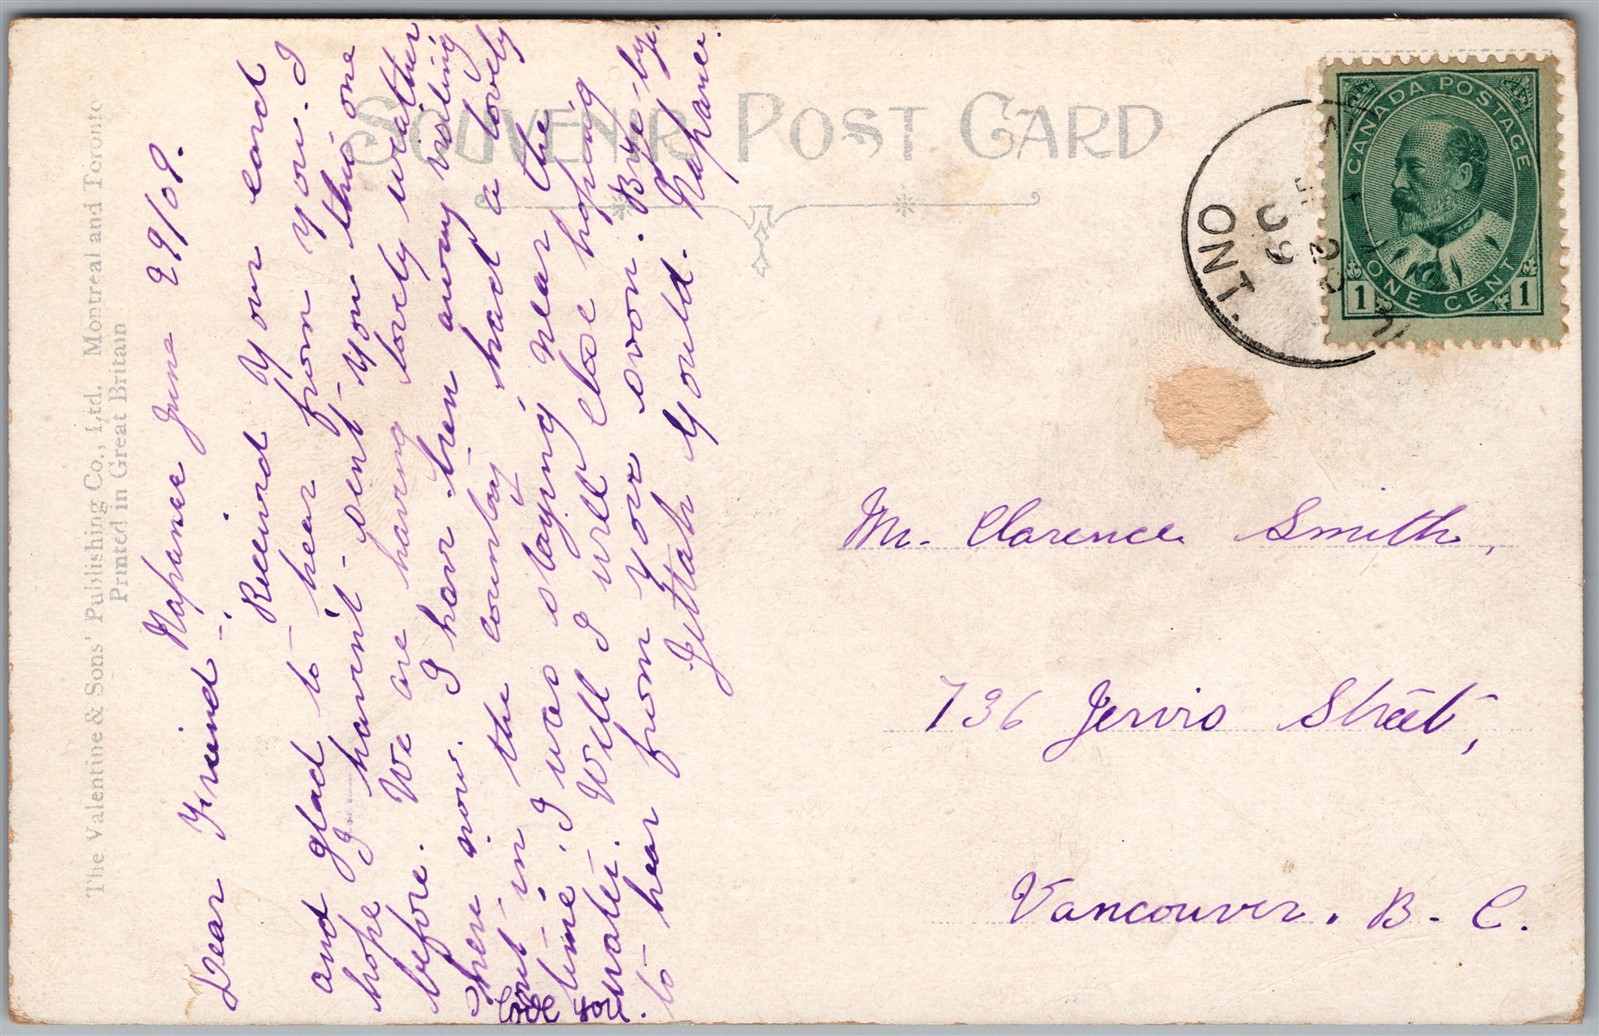 SOUVENIR POST CARD
The Valentine & Sons' Publishing Co., Ltd. Montreal and Toronto
Printed in Great Britain
Napanee June 29/09.
Dear Freind -
Received your card
and glad to hear from you. I
hope I havint sent you this one
before. We are having lovely weather
here now. I have been away visiting
out in the country had a lovely
time, I was staying near the
water. Well I will close hoping
to hear from you soon. Bye-bye.
Jettah Gould. Napanee.
CANADA POSTAGE
1 ONE CENT 1
ONT.
09
Mr. Clarence Smith,
736 Jervis Street,
Vancouver. B. C.